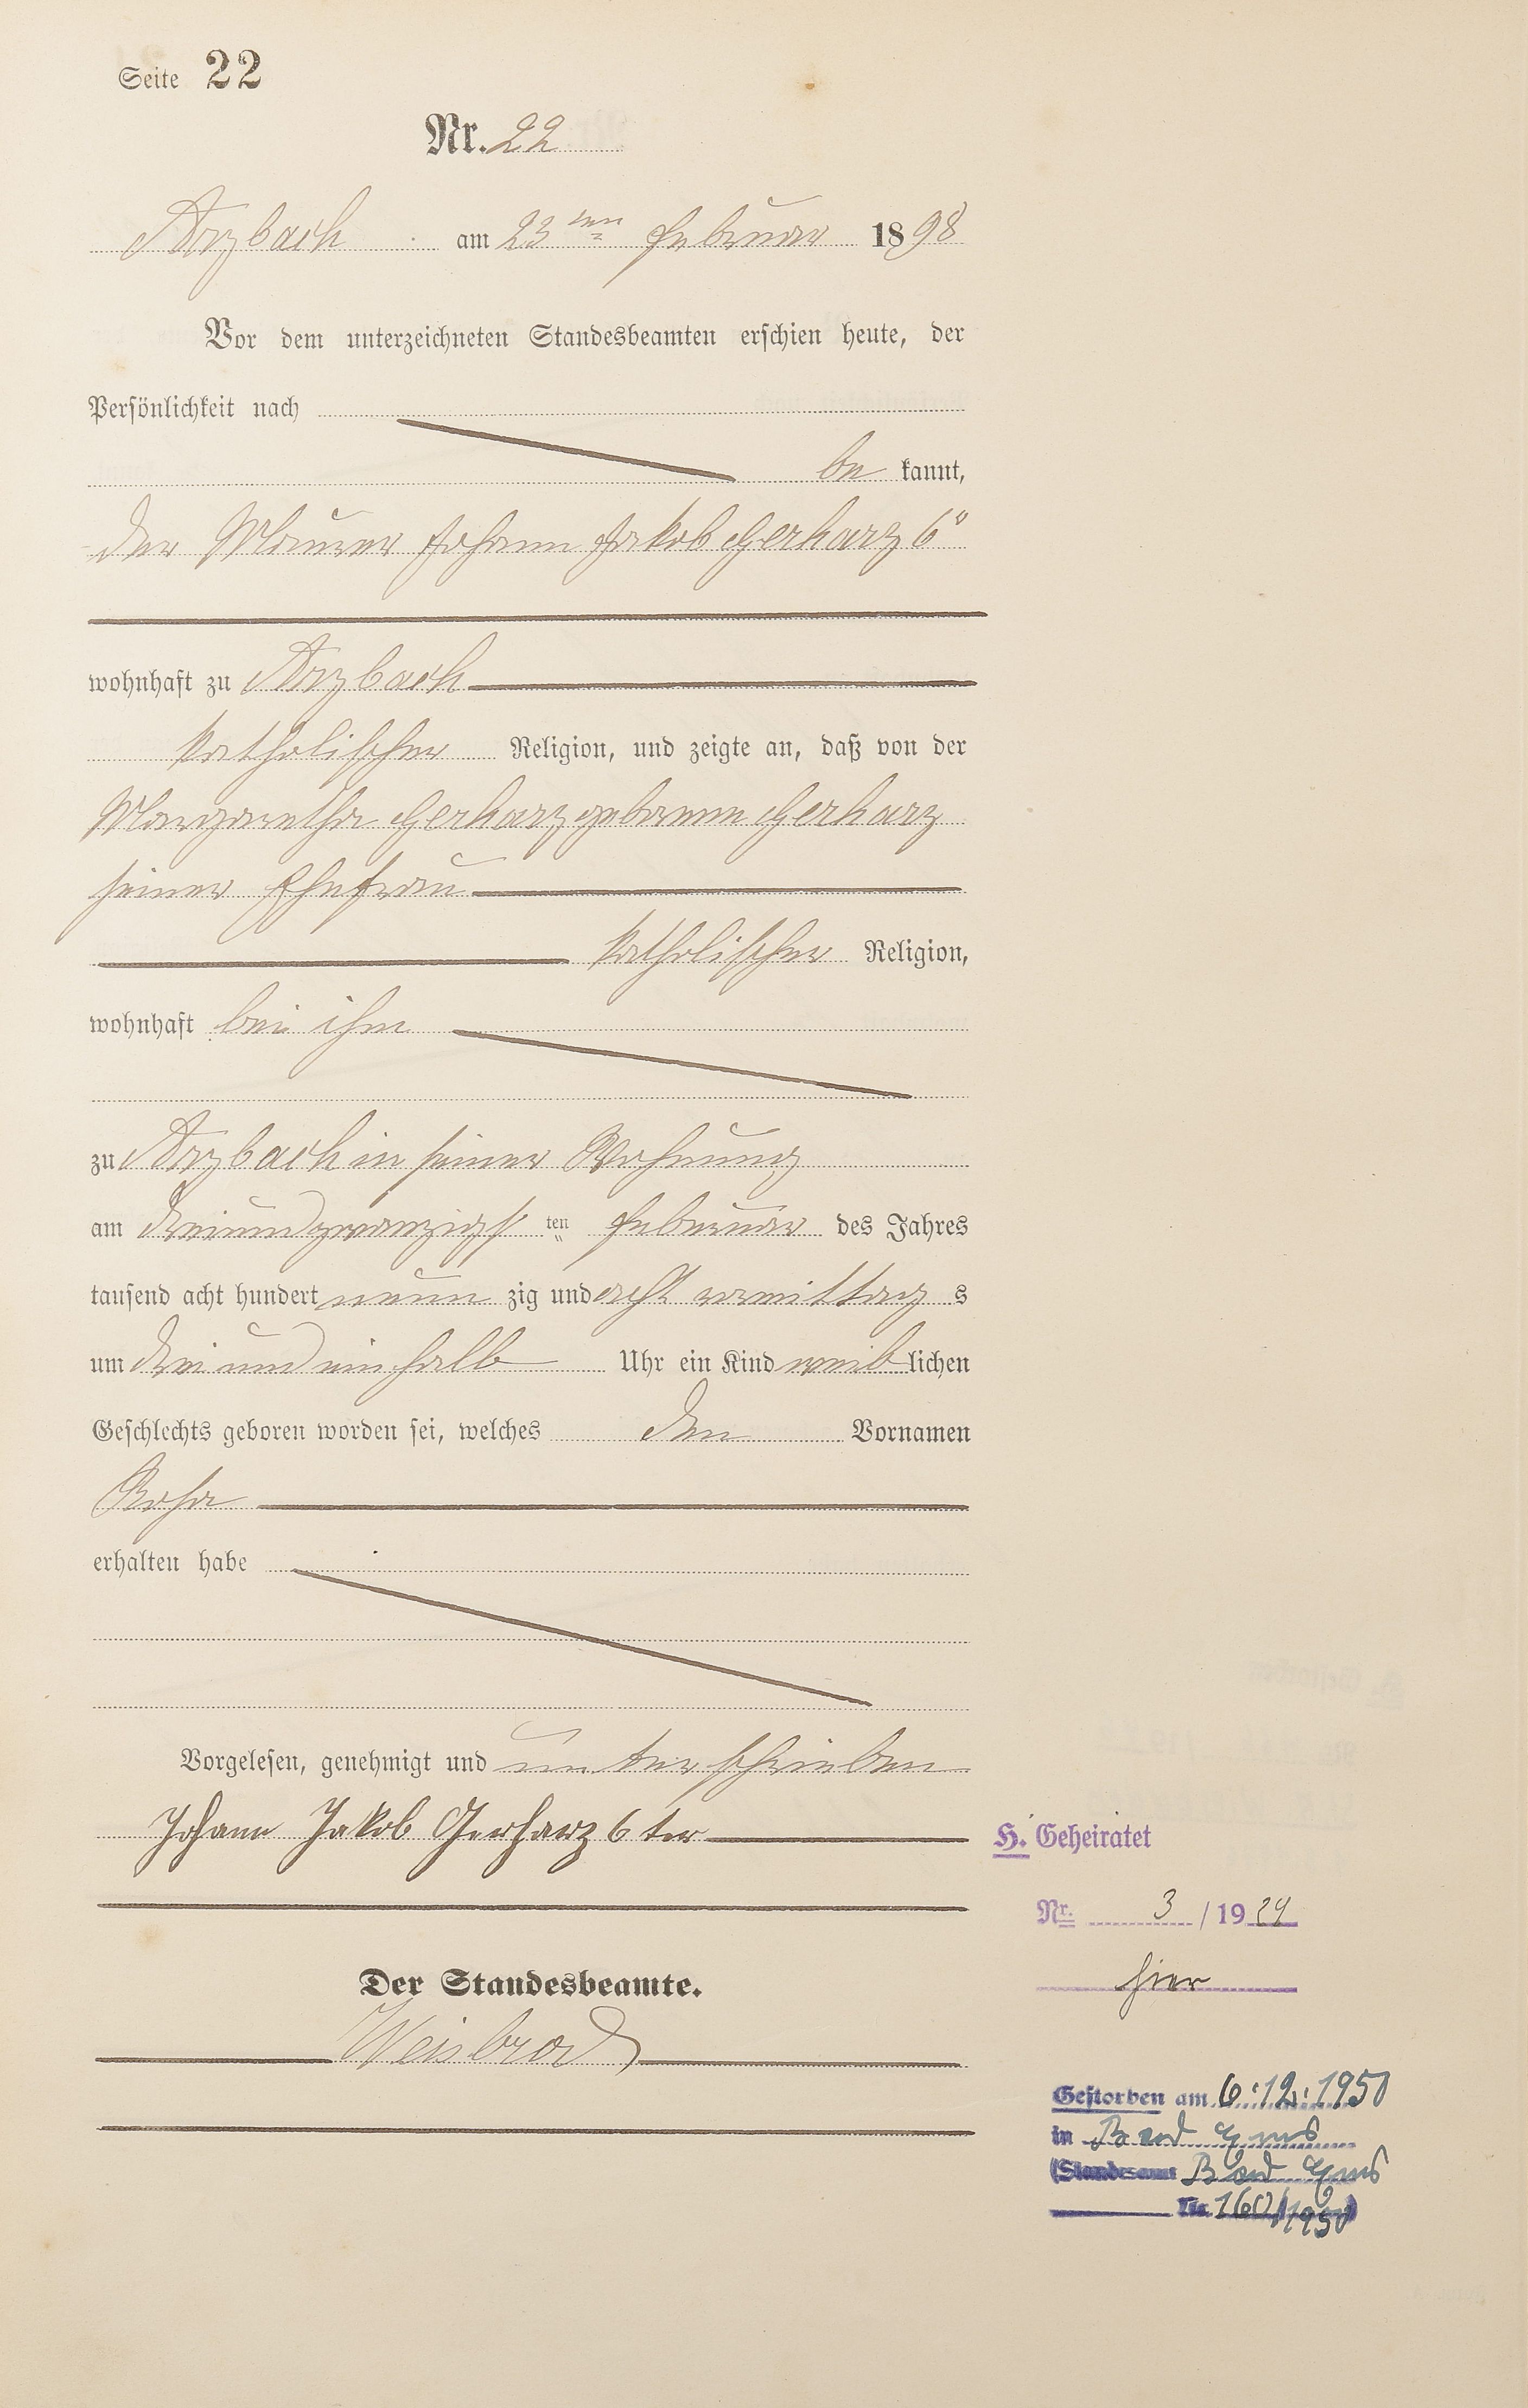 Seite 22
Nr. 22
Arzbach am 23ten Februar 1898
Vor dem unterzeichneten Standesbeamten erschien heute, der
Persönlichkeit nach
be kannt,
der Maurer Johann Jakob Gerharz 6"
wohnhaft zu Arzbach
katholischer Religion, und zeigte an, daß von der
Margaretha Gerharz geborenen Gerharz
seiner Ehefrau
katholischer Religion,
wohnhaft bei ihm
zu Arzbach in seiner Wohnung
am dreiundzwanzigsten Februar des Jahres
tausend acht hundert neun zig und acht vormittag s
um drei und ein halb Uhr ein Kind weiblichen
Geschlechts geboren worden sei, welches den Vornamen
Rosa
erhalten habe
Vorgelesen, genehmigt und unterschrieben
Johann Jakob Gerharz 6 ter
H. Geheiratet
Nr. 3 / 1924
hier
Der Standesbeamte.
Weisbrod
Gestorben am 6.12.1950
in Bad Ems
(Standesamt Bad Ems
Nr. 160/1950)